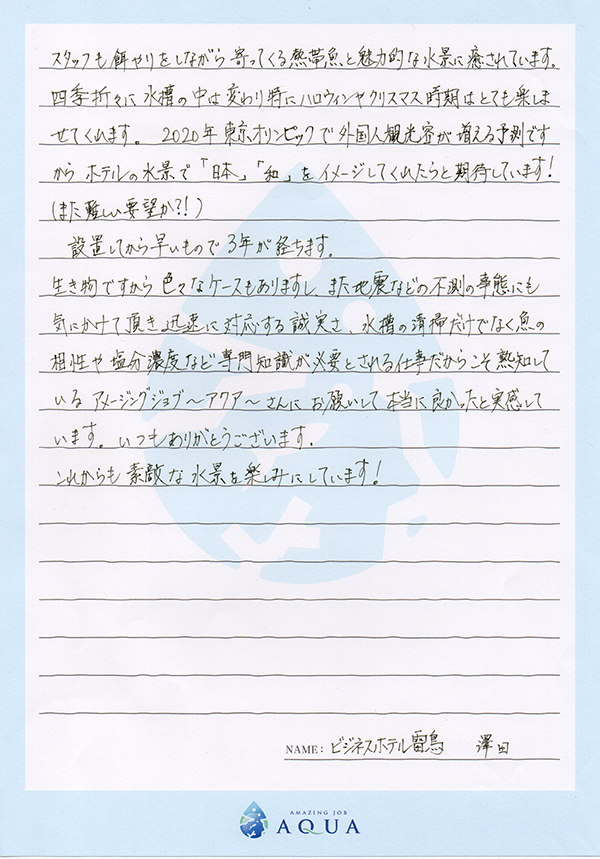 スタッフも餌やりをしながら寄ってくる熱帯魚と魅力的な水景に癒されています。
四季折々に水槽の中は変わり特にハロウィンやクリスマス時期はとても楽しま
せてくれます。 2020年東京オリンピックで外国人観光客が増える予測です
から ホテルの水景で「日本」「和」をイメージしてくれたらと期待しています!
(また難しい要望か?!)
設置してから早いもので3年が経ちます。
生き物ですから色々なケースもありますし、また地震などの不測の事態にも
気にかけて頂き迅速に対応する誠実さ、水槽の清掃だけでなく魚の
相性や塩分濃度など専門知識が必要とされる仕事だからこそ熟知して
いるアメージングジョブ〜アクア〜さんにお願いして本当に良かったと実感して
います。いつもありがとうございます.
これからも素敵な水景を楽しみにしています!
NAME: ビジネスホテル雷鳥 澤田
AMAZING JOB
AQUA